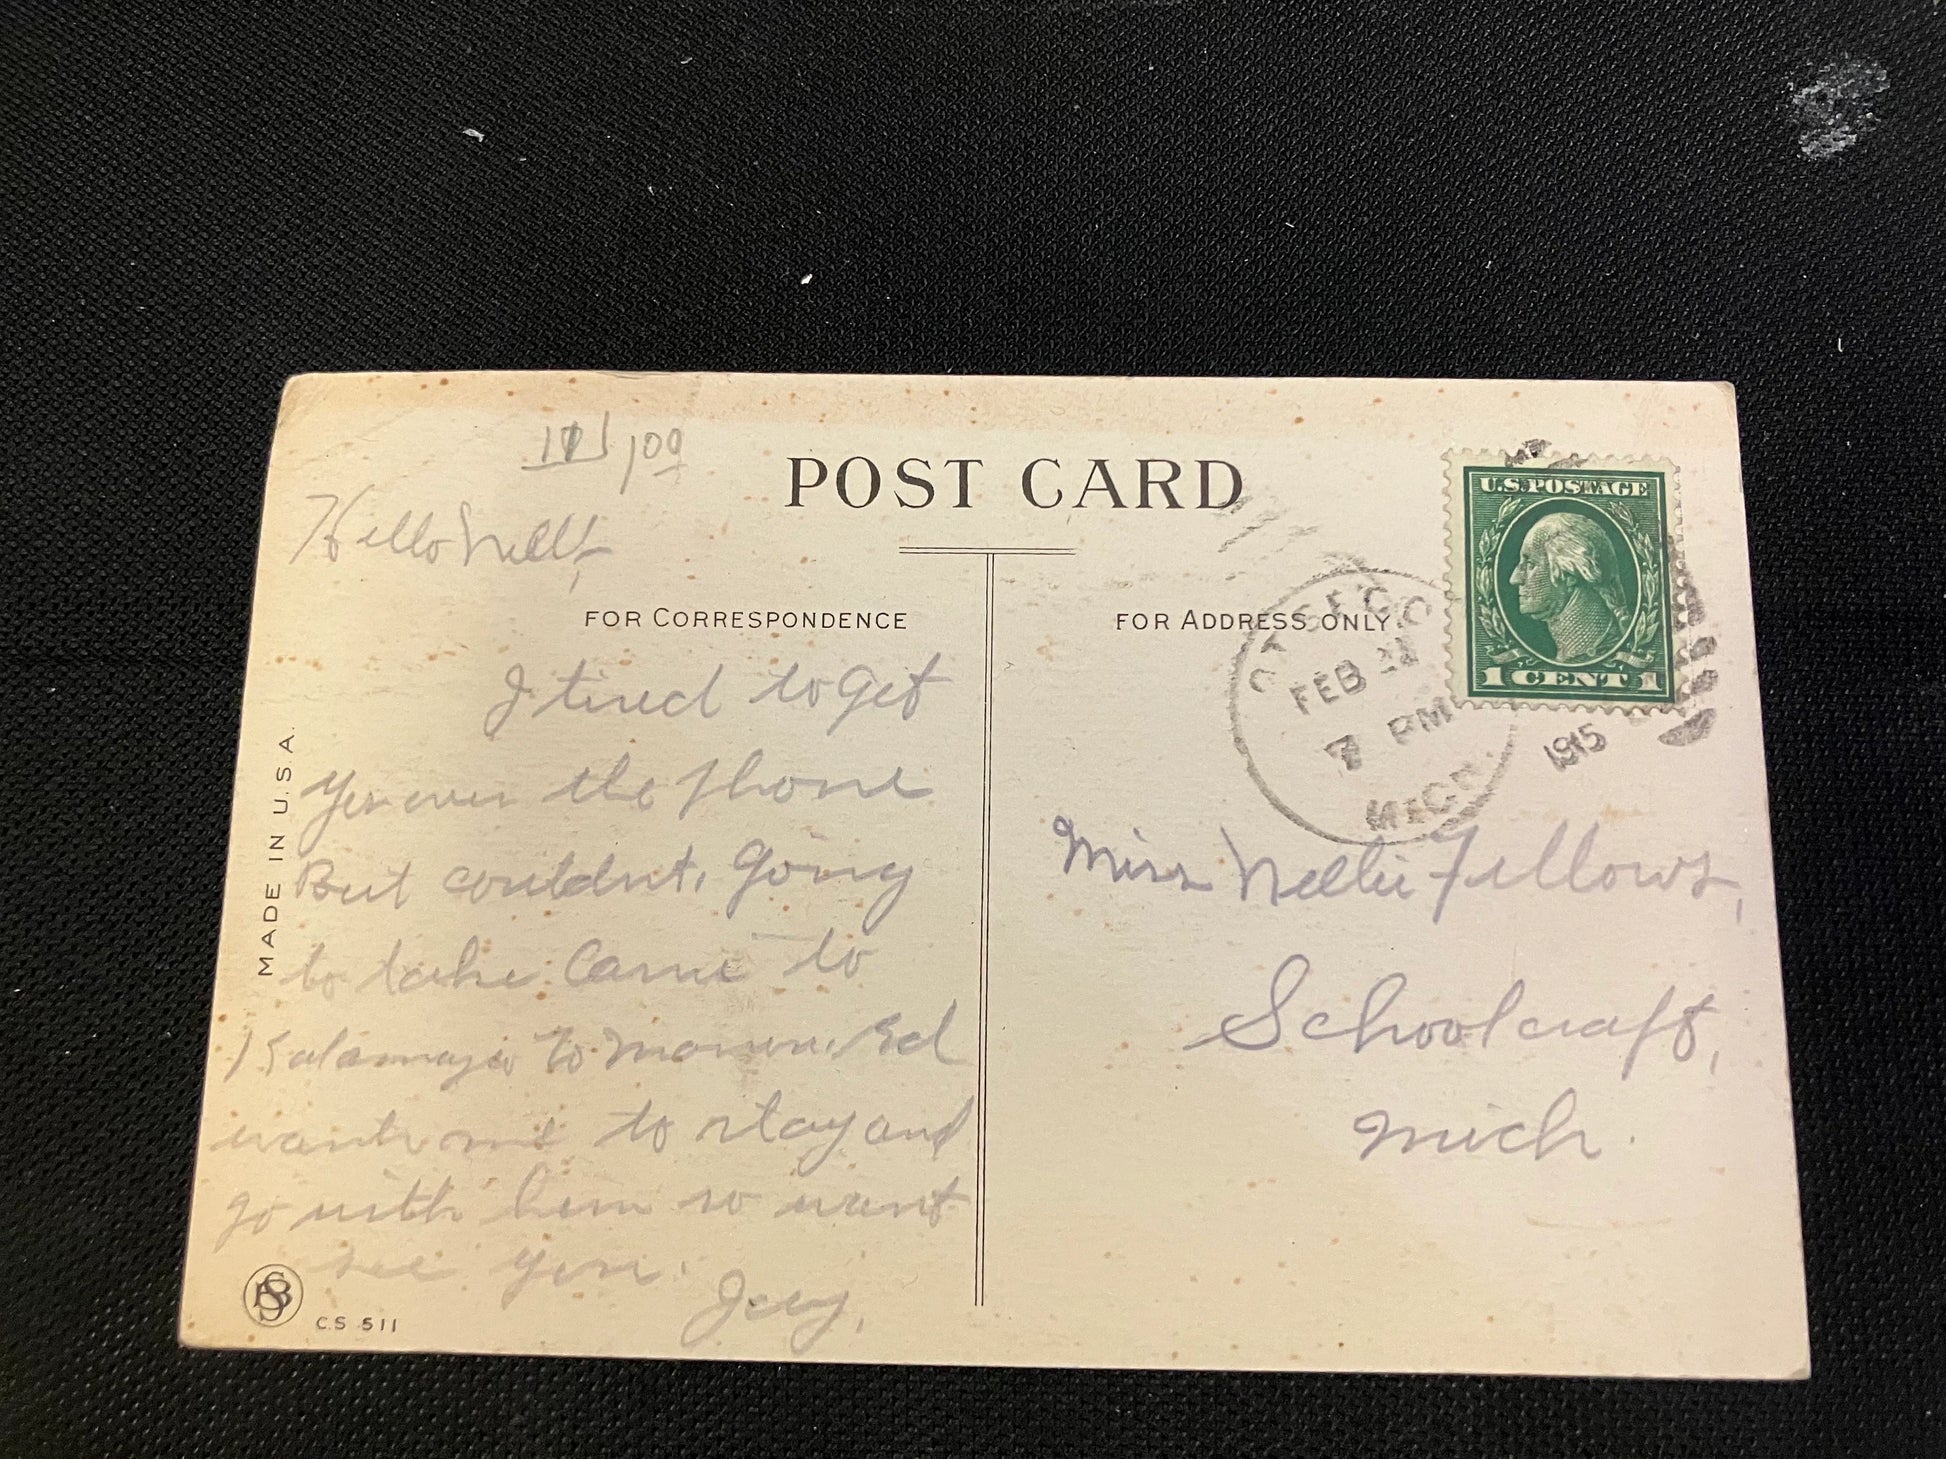 171 1.00
POST CARD
U.S. POSTAGE
1 CENT 1
OTSEGO
FEB
7 PM
1915
MICH.
Hello Nell,
FOR CORRESPONDENCE
FOR ADDRESS ONLY
I tired to get
yer over the phone
But couldnt. Going
to take Came to
Kalamazoo to morrow. Ed
wants me to stay and
go with him so wont
see you.
MADE IN U.S.A.
C.S 511
Miss Nellie Fellows,
Schoolcraft,
Mich.